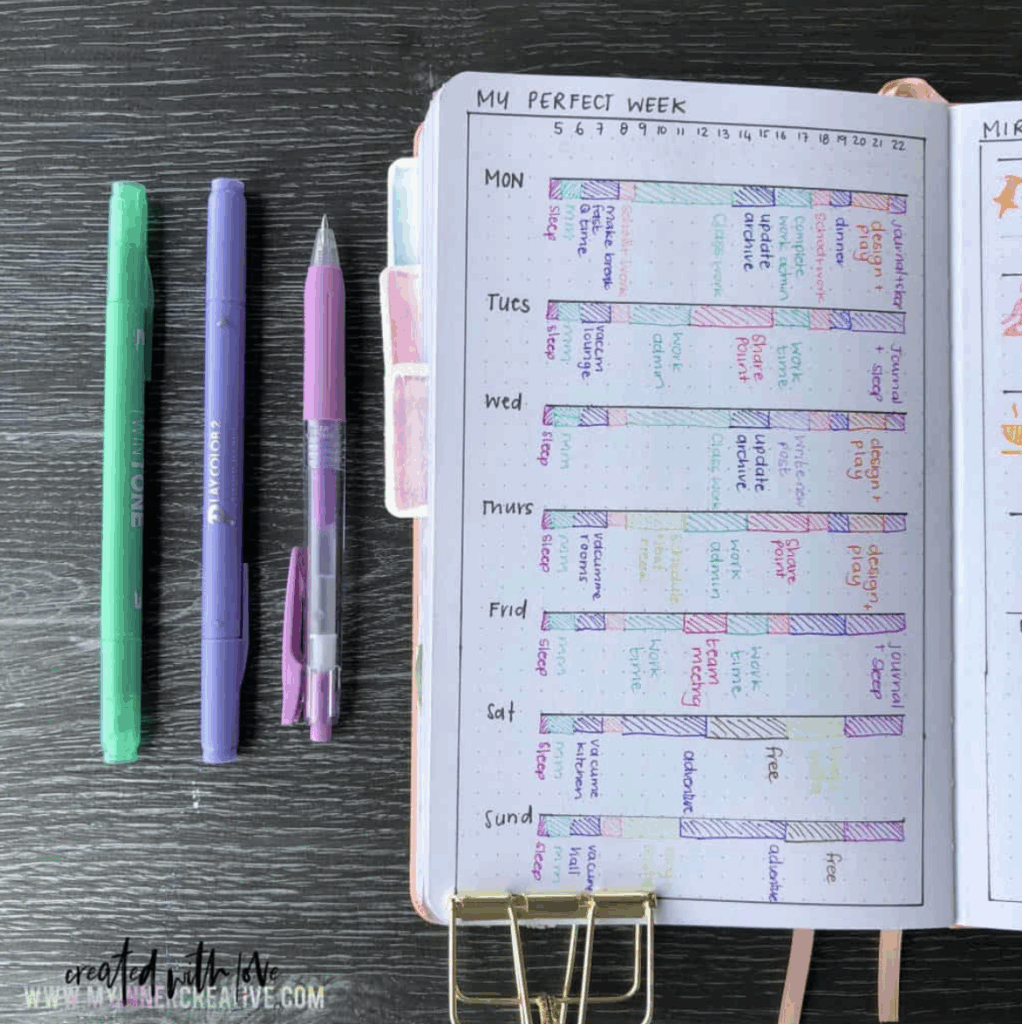 MY PERFECT WEEK
5 6 7 8 9 10 11 12 13 14 15 16 17 18 19 20 21 22
MON
sleep
mm
make break
fast
Q time
class work
update
archive
complete
work admin
dinner
design +
play
TUES
sleep
mm
lounge
work
admin
share
point
work
time
journal
+ sleep
Wed
sleep
mm
class work
update
archive
write new
post
design +
play
Thurs
sleep
mm
vacumme
rooms
work
admin
share
point
design +
play
Frid
sleep
mm
work
time
team
meeting
work
time
journal
+ sleep
Sat
sleep
mm
vacume
kitchen
adventure
free
Sund
sleep
mm
vacume
hall
adventure
free
MIR
TWINTONE
PLAYCOLOR 2
created with love
WWW.MYINNERCREATIVE.COM